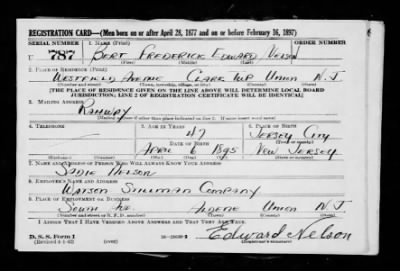 REGISTRATION CARD—(Men born on or after April 28, 1877 and on or before February 16, 1897)
SERIAL NUMBER 1. NAME (Print) ORDER NUMBER
U 787 BERT FREDERICK EDWARD NELSON
(First) (Middle) (Last)
2. PLACE OF RESIDENCE (Print)
WESTFIELD AVENUE CLARK TWP UNION N. J
(Number and street) (Town, township, village, or city) (County) (State)
[THE PLACE OF RESIDENCE GIVEN ON THE LINE ABOVE WILL DETERMINE LOCAL BOARD
JURISDICTION; LINE 2 OF REGISTRATION CERTIFICATE WILL BE IDENTICAL]
3. MAILING ADDRESS
RAHWAY
[Mailing address if other than place indicated on line 2. If same insert word same]
4. TELEPHONE 5. AGE IN YEARS 6. PLACE OF BIRTH
47 JERSEY CITY
DATE OF BIRTH (Town or county)
APRIL 6 1895 NEW JERSEY
(Exchange) (Number) (Mo.) (Day) (Yr.) (State or country)
7. NAME AND ADDRESS OF PERSON WHO WILL ALWAYS KNOW YOUR ADDRESS
SADIE NELSON
8. EMPLOYER'S NAME AND ADDRESS
WATSON STILLMAN COMPANY
9. PLACE OF EMPLOYMENT OR BUSINESS
SOUTH AVE. ALDENE UNION N. J
(Number and street or R. F. D. number) (Town) (County) (State)
I AFFIRM THAT I HAVE VERIFIED ABOVE ANSWERS AND THAT THEY ARE TRUE.
D. S. S. Form 1
(Revised 4-1-42) (over) Edward Nelson
(Registrant's signature)